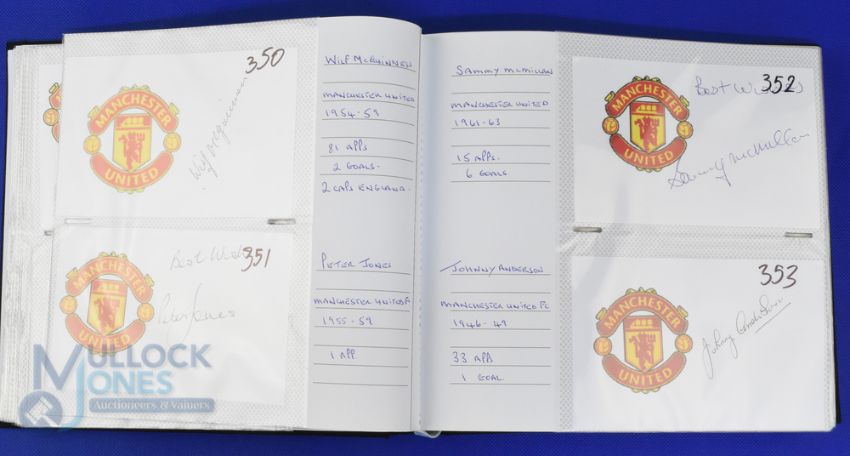 350
MANCHESTER
UNITED
Wilf McGuinness
WILF McGUINNESS
MANCHESTER UNITED
1954-59
81 APPS
2 GOALS-
2 CAPS ENGLAND-
351
Best Wishes
MANCHESTER
UNITED
Peter Jones
PETER JONES
MANCHESTER UNITED F
1955-59
1 APP
SAMMY McMILLAN
MANCHESTER UNITED
1961-63
15 APPS.
6 GOALS
352
Best Wishes
MANCHESTER
UNITED
Sammy McMillan
JOHNNY ANDERSON
MANCHESTER UNITED FC
1946-49
33 APPS
1 GOAL
353
MANCHESTER
UNITED
Johnny Anderson
MULLOCK
JONES
Auctioneers & Valuers